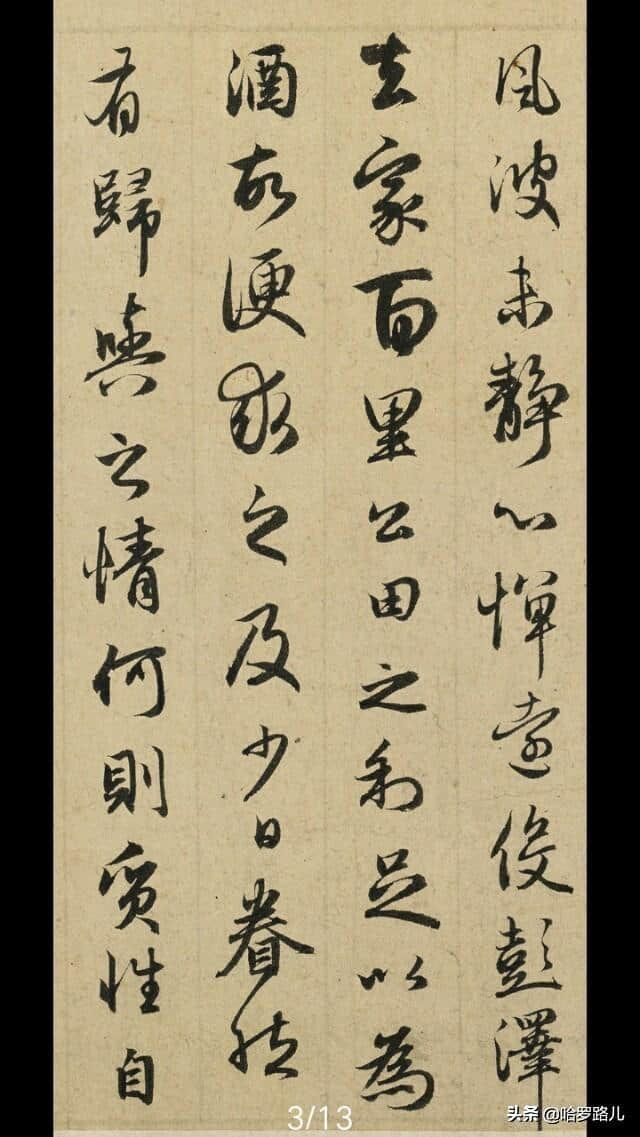 風波未靜心憚遠役彭澤
去家百里公田之利足以為
酒故便求之及少日眷然
有歸與之情何則質性自
3/13
头条 @哈罗路儿